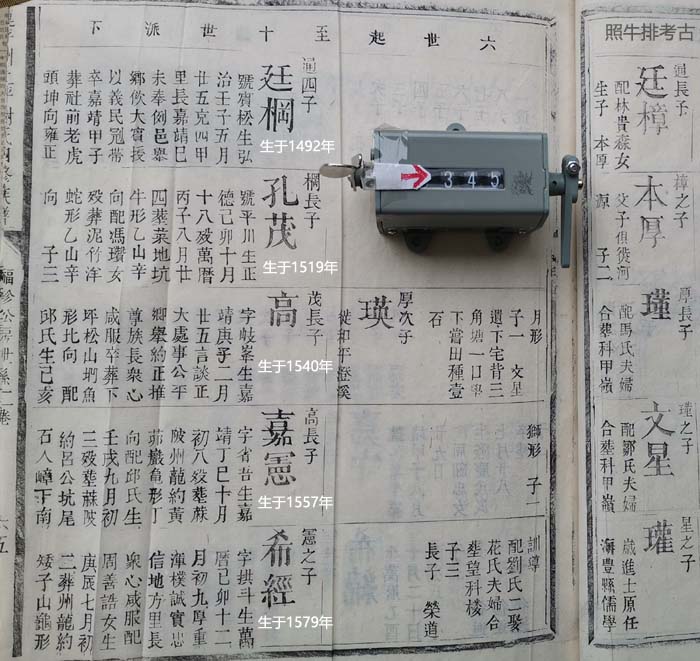 照牛排考古
通長子
廷樟
配林貴森女
生子 本厚
樟之子
本厚
父子俱徙河
源 子二
厚長子
瑾
配馬氏夫婦
合塟科甲嶺
瑾之子
文星
配鄒氏夫婦
合塟科甲嶺
星之子
瓘
歲進士原任
海豐縣儒學
六世起至十世派下
月形
子一 文星
遷下宅背三
角塘一口寧
下嘗田種壹
石
厚次子
瑛
徙和平澄溪
獅形 子一
訓導
配劉氏二娶
花氏夫婦合
塟望科楼
子三
長子 榮道
345
通四子
廷棡
號賓松生弘
治壬子五月
廿五克四甲
里長嘉靖巳
未奉例邑舉
鄉飲大賓授
以義民冠帶
卒嘉靖甲子
葬社前老虎
頭坤向雍正
生于1492年
棡長子
孔茂
號平川生正
德己卯十月
十八殁萬曆
丙子八月廿
四葬菜地坑
牛形乙山辛
向配馮瓚女
殁葬泥竹洋
蛇形乙山辛
向 子三
生于1519年
茂長子
高
字岐峯生嘉
靖庚子二月
廿五言談正
大處事公平
鄉舉約正推
尊族長衆心
咸服卒葬下
坪松山坰魚
形北向 配
邱氏生己亥
生于1540年
高長子
嘉憲
字省吾生嘉
靖丁巳十月
初八殁塟蔴
陂州龍約黄
茆巖龜形丁
向配邱氏生
壬戌九月初
三殁塟蔴陂
約呂公坑尾
石人嶂下南
生于1557年
憲之子
希經
字拱斗生萬
曆己卯十二
月初九厚重
渾樸誠實忠
信地方里長
衆心咸服配
周善誥女生
庚辰七月初
二葬州龍約
矮子山龜形
生于1579年
六五